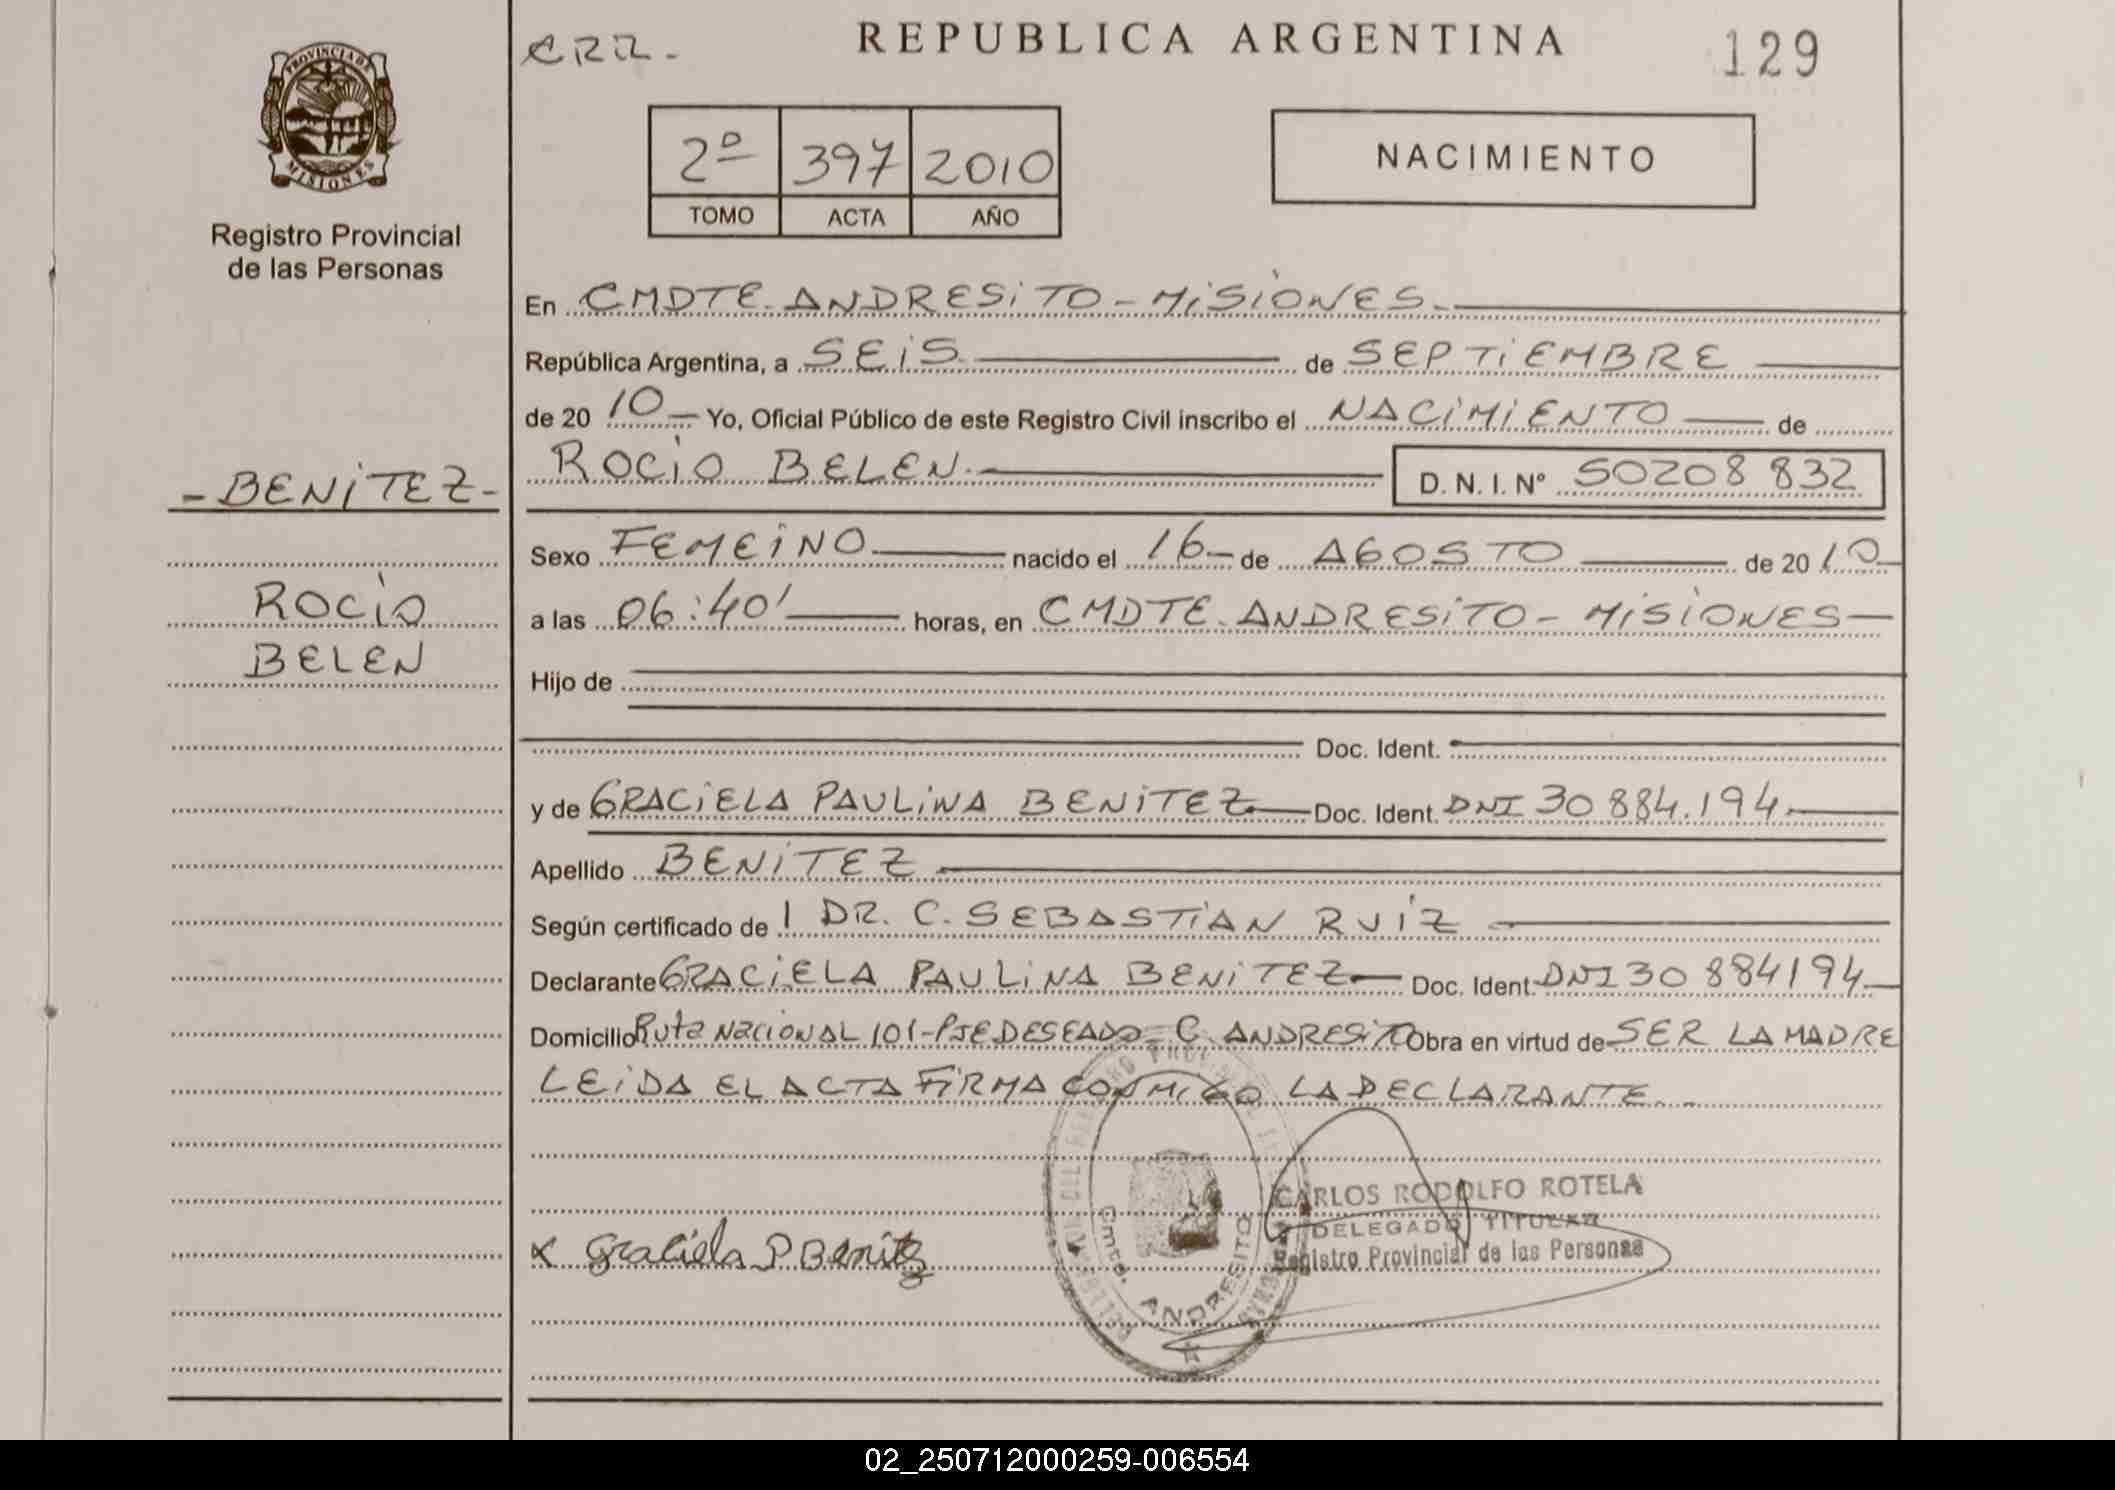 REPUBLICA ARGENTINA
129
PROVINCIA DE
MISIONES
Registro Provincial
de las Personas
CRR.-
2º 397 2010
TOMO ACTA AÑO
NACIMIENTO
En CMDTE. ANDRESiTO - MiSiONES.
República Argentina, a SEiS de SEPTiEMBRE
de 20 10 Yo, Oficial Público de este Registro Civil inscribo el NACiMiENTO de
ROCiO BELEN. D. N. I. Nº 50208 832
- BENiTEZ -
Sexo FEMEiNO nacido el 16 de AGOSTO de 20 10
ROCiO
a las 06:40' horas, en CMDTE. ANDRESiTO - MiSiONES
BELEN
Hijo de
Doc. Ident.
y de GRACiELA PAULiNA BENiTEZ Doc. Ident. DNI 30 884.194
Apellido BENiTEZ
Según certificado de 1 DR. C. SEBASTiAN RUiZ
Declarante GRACiELA PAULiNA BENiTEZ Doc. Ident. DNI 30 884194
Domicilio Ruta NaciONAL 101-PJE DESEADO - C. ANDRESiTO Obra en virtud de SER LA MADRE
LEiDA EL ACTA FiRMA CONMiGO LA DECLARANTE.-
CARLOS RODOLFO ROTELA
DELEGADO TITULAR
Registro Provincial de las Personas
x Graciela P Benitez
Cmte. ANDRESITO
02_250712000259-006554